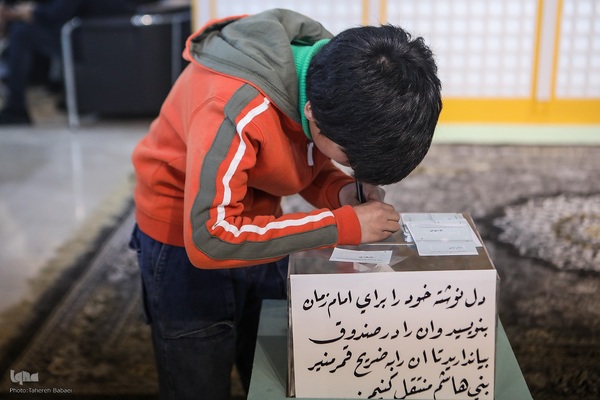 دل نوشته خود را براي امام زمان
بنويسيد وان را در صندوق
بياندازيد تا ان را به ضريح قمر منير
بني هاشم منتقل كنيم.
iqna
Photo: Tahereh Babaei